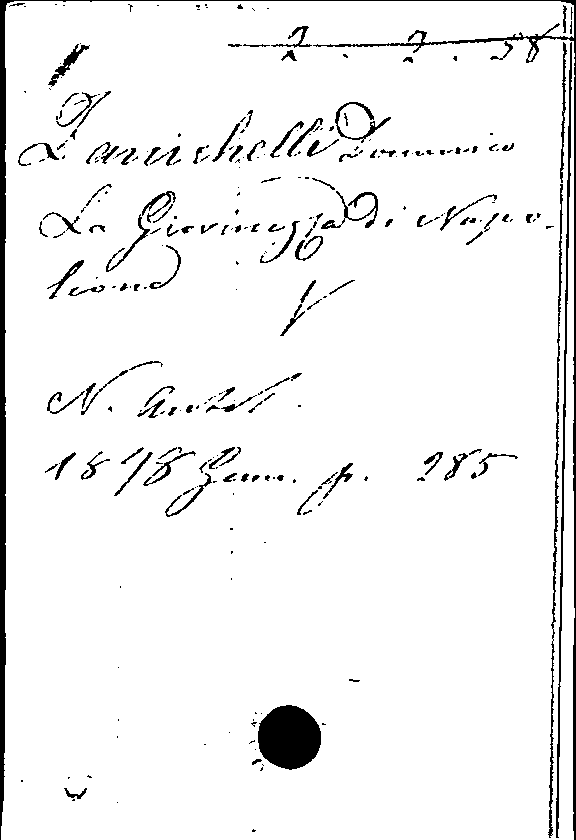 2. 2. 58
Zanichelli Domenico
La Giovinezza di Napo-
lione
V
N. Antol.
1878 Genn. p. 285